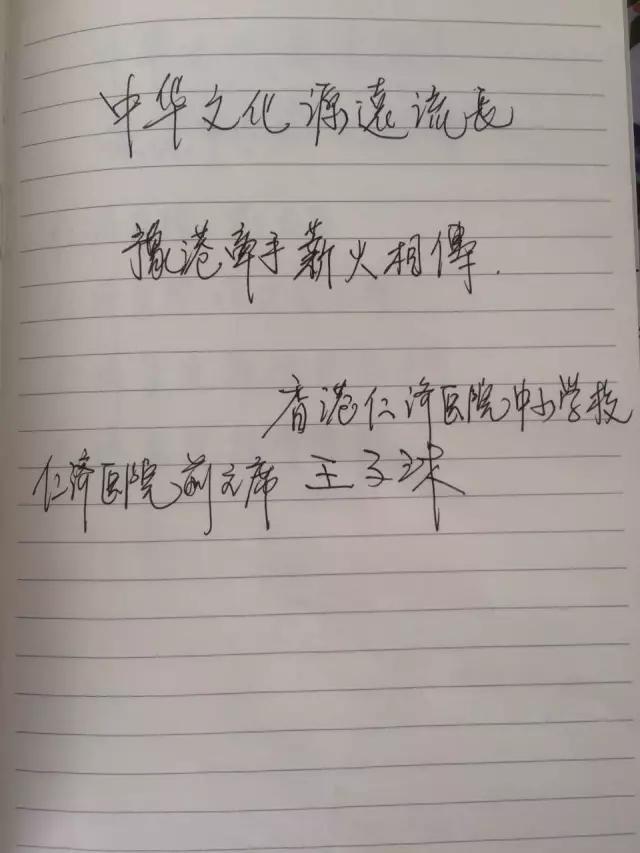 中华文化源遠流長
豫港牵手薪火相傳.
香港仁济医院中小学校
仁濟医院前主席 王子珠